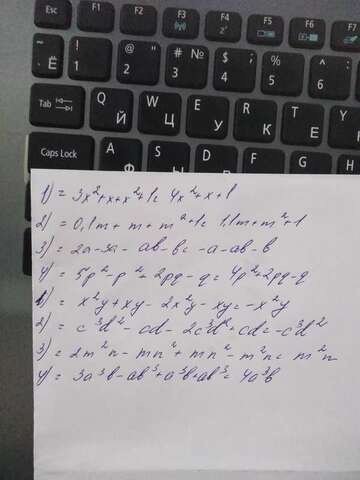 Esc F1 F2 F3 F4 F5 F6 F7
Ё ! 1 @ " 2 # № 3 $ ; 4 % 5 ^ : 6
Tab Q Й W Ц E У R К T Е
Caps Lock A S D F
1) = 3x²+x+x²+1= 4x²+x+1
2) = 0,1m + m + m²+1= 1,1m+m²+1
3) = 2a-3a- ab-b= -a-ab-b
4) = 5p²-p²+2pq-q= 4p²+2pq-q
1) = x²y+xy- 2x²y- xy= -x²y
2) = c³d²- cd- 2c³d²+cd= -c³d²
3) = 2m²n- mn⁴+ mn⁴- m²n= m²n
4) = 3a³b-ab³+a³b+ab³= 4a³b